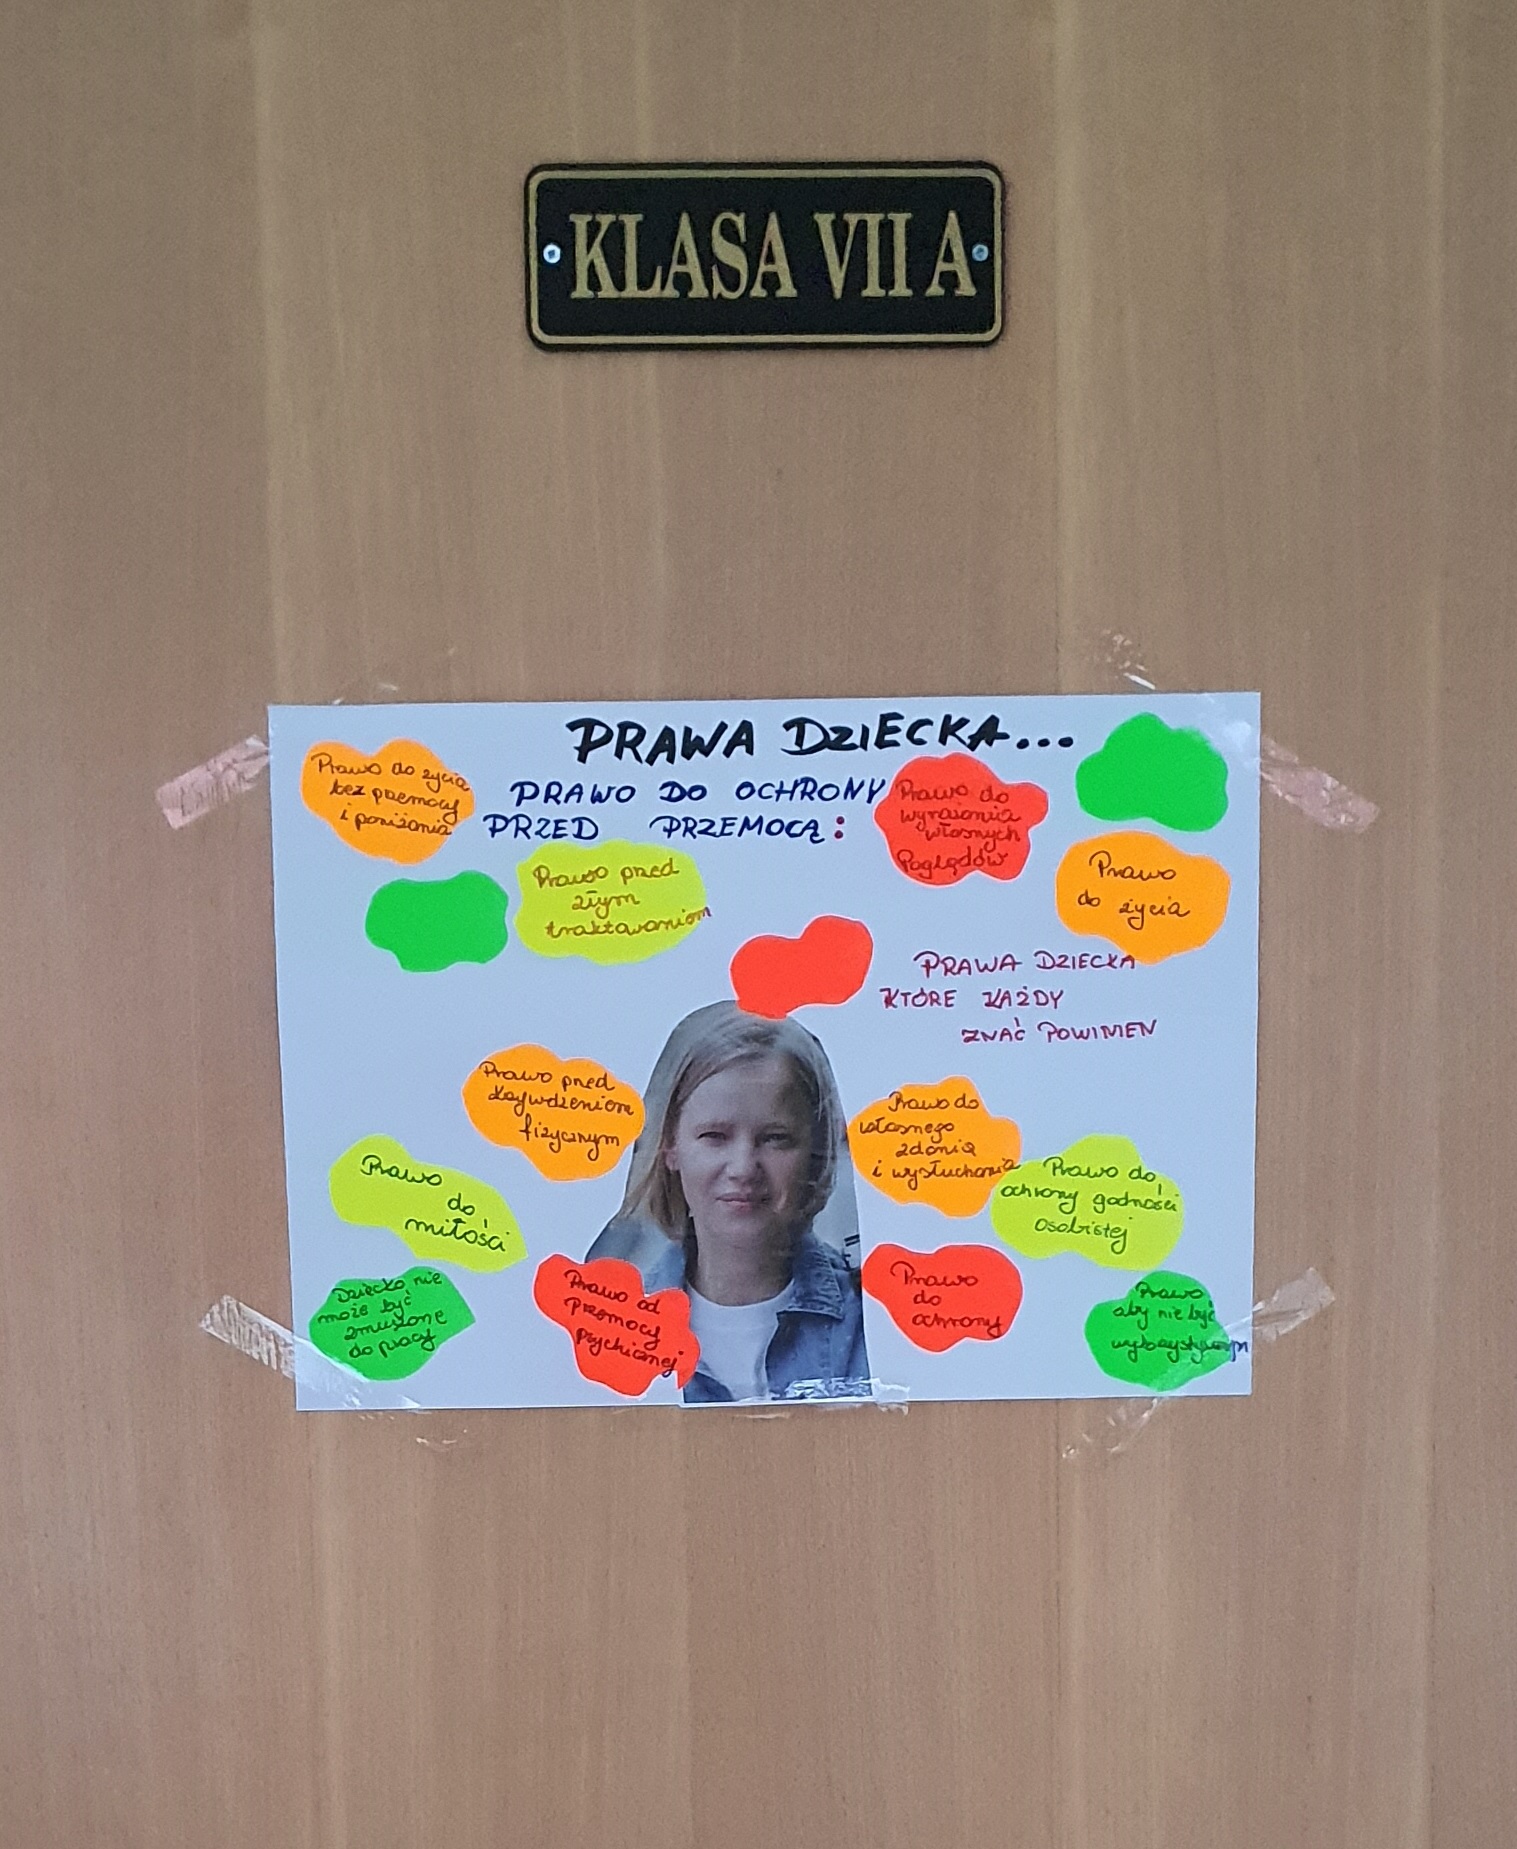 KLASA VII A
PRAWA DZIECKA...
PRAWO DO OCHRONY
PRZED PRZEMOCĄ:
Prawo do życia
bez przemocy
i poniżania
Prawo do
wyrażania
własnych
Poglądów
Prawo przed
złym
traktowaniem
Prawo
do życia
PRAWA DZIECKA
KTÓRE KAŻDY
ZNAĆ POWINIEN
Prawo przed
krzywdzeniem
fizycznym
Prawo do
własnego
zdania
i wysłuchania
Prawo
do
miłości
Prawo do
ochrony godności
osobistej
Dziecko nie
może być
zmuszone
do pracy
Prawo od
Przemocy
psychicznej
Prawo
do
ochrony
Prawo
aby nie być